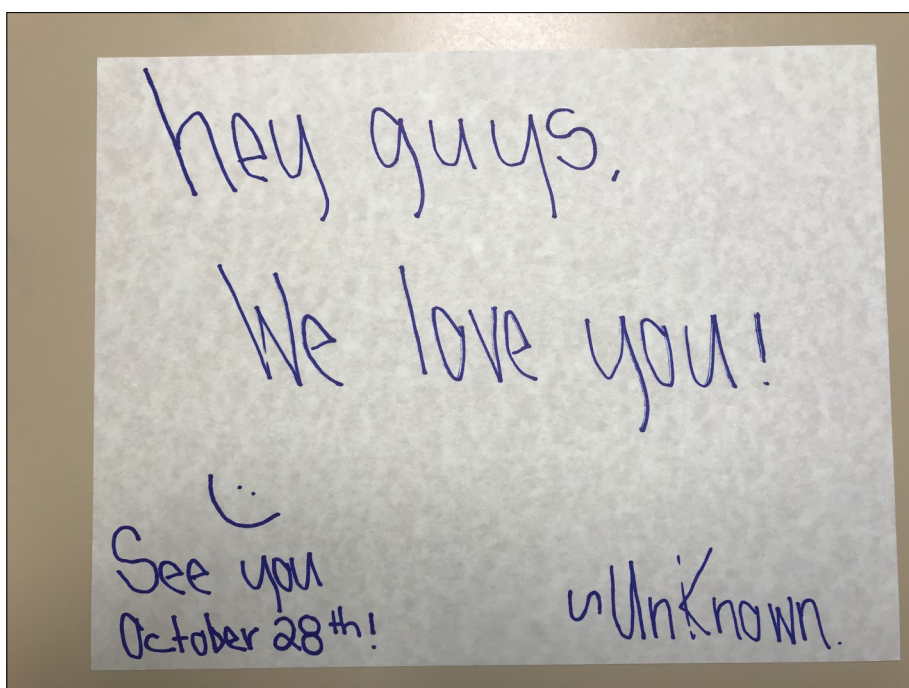 hey guys,
We love you!
See you
October 28th!
~Unknown.